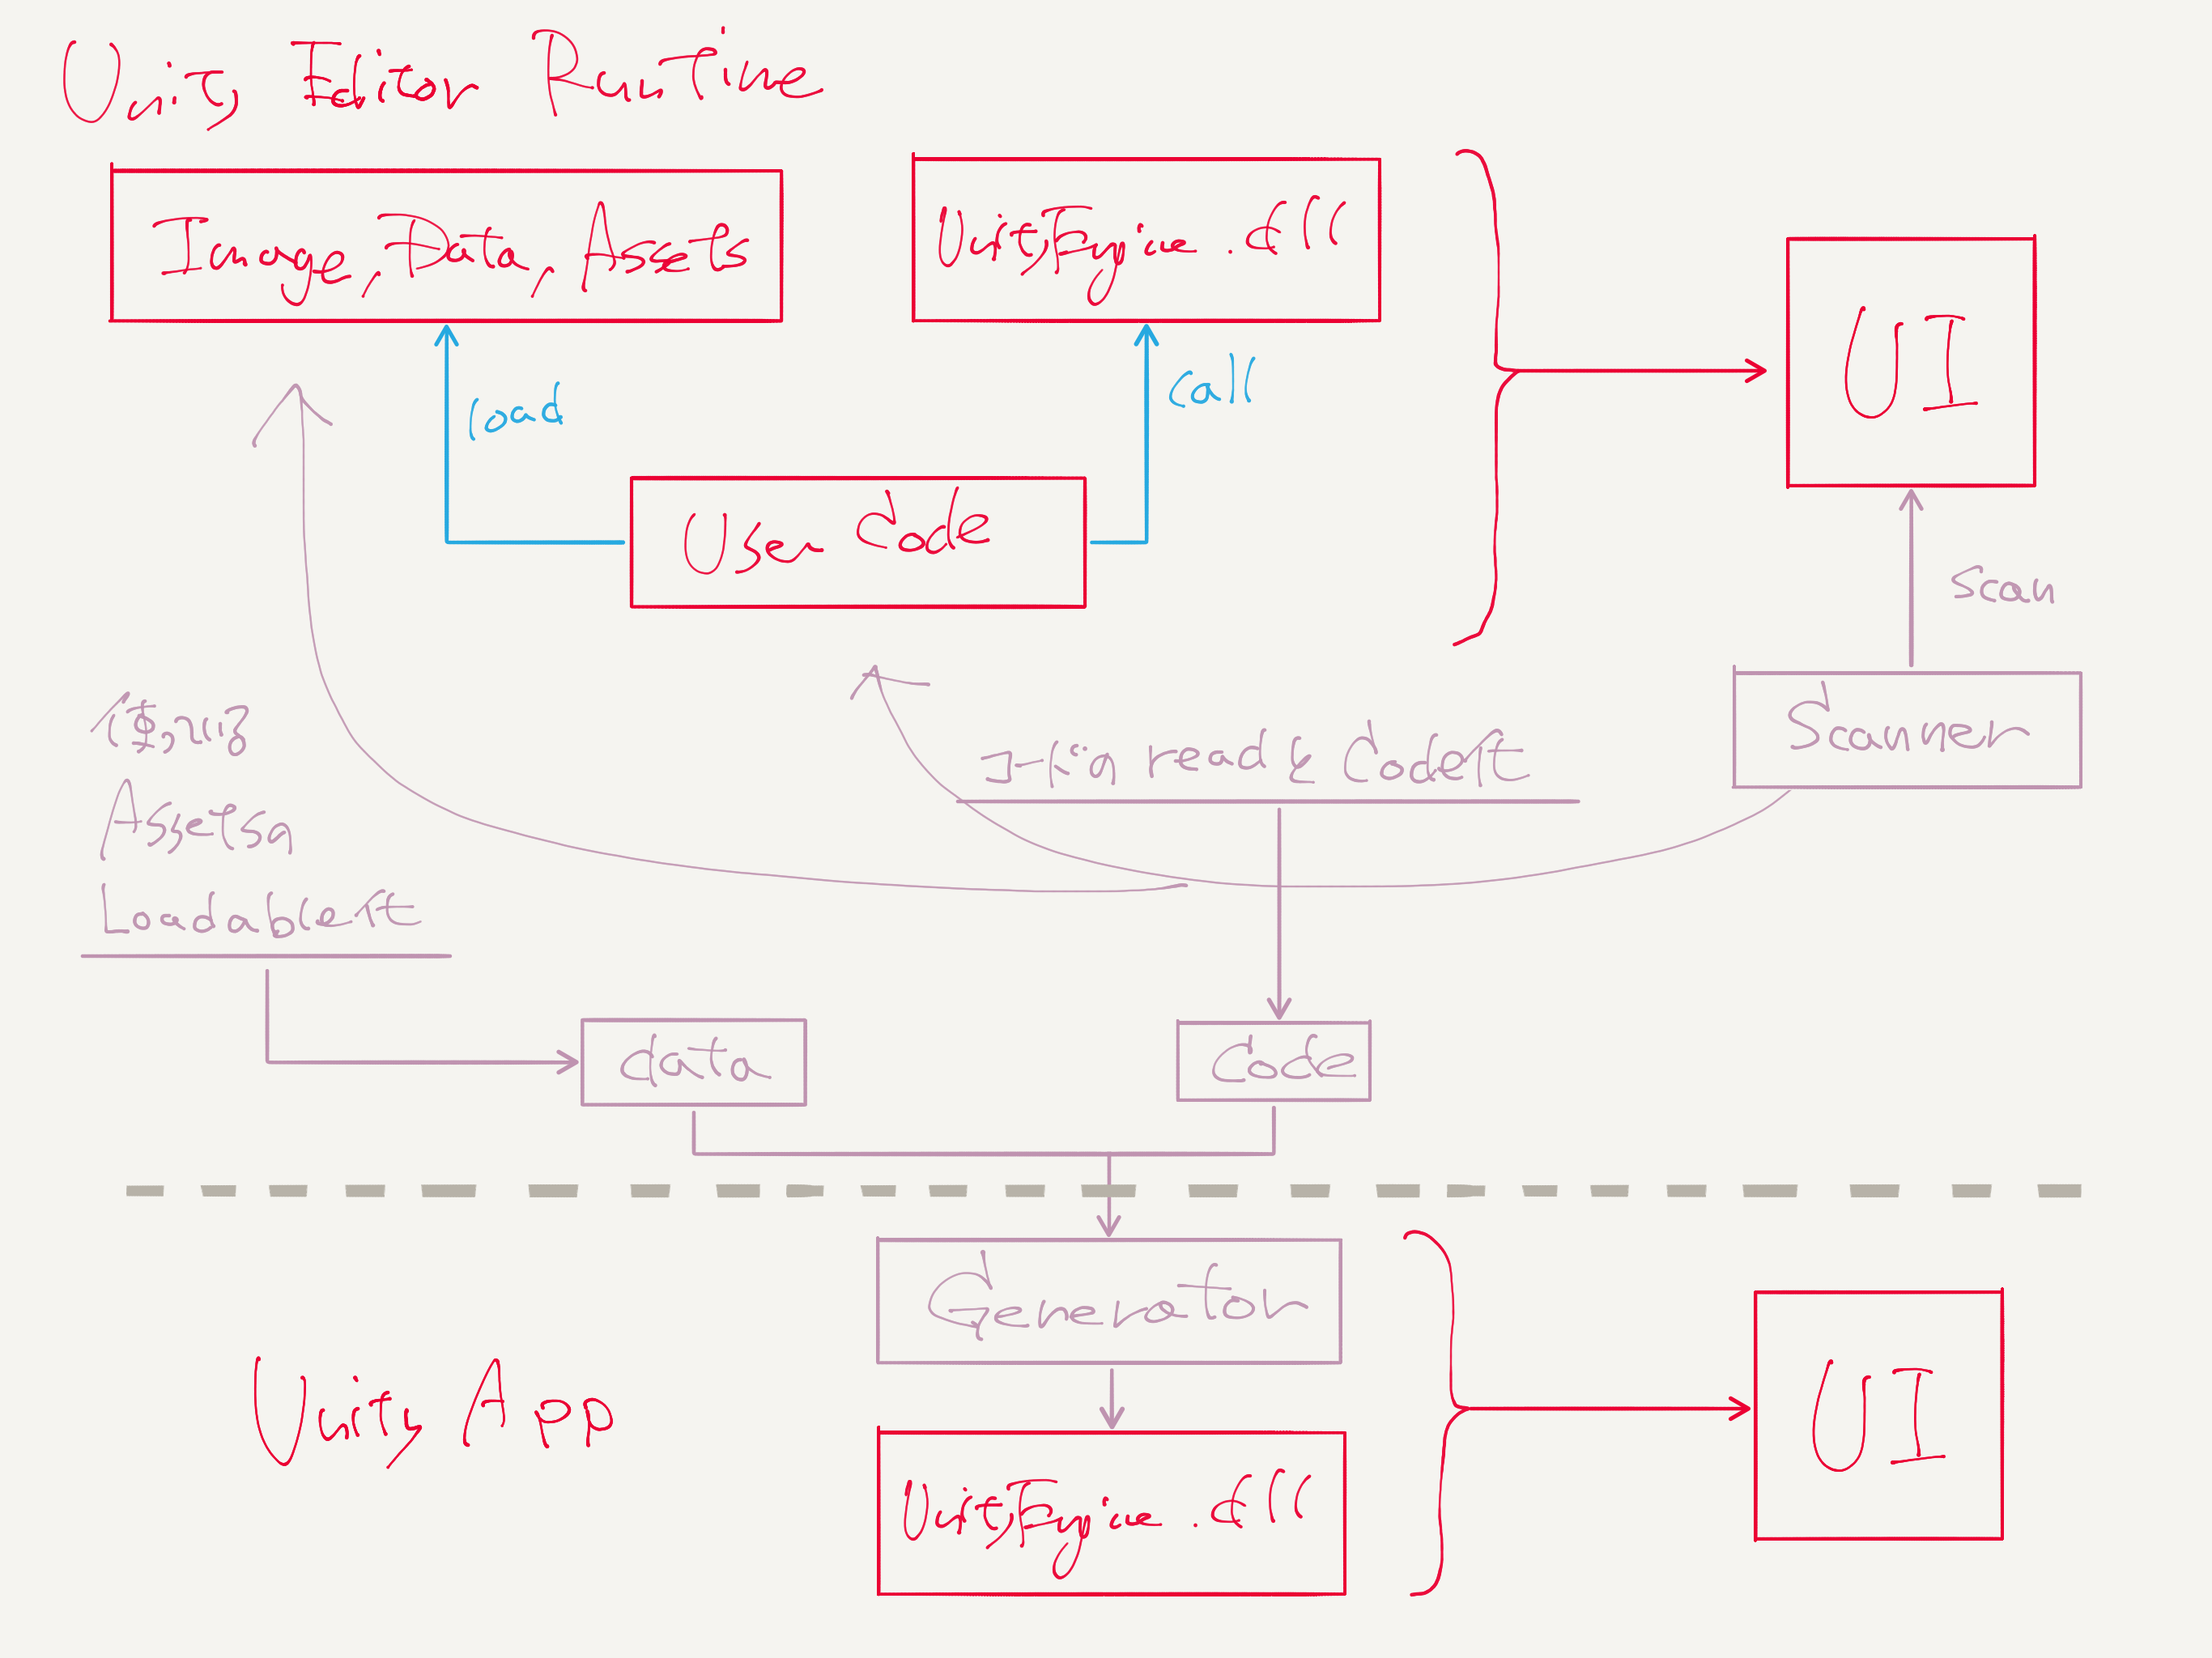 Unity Editor Runtime
Image, Data, Assets
UnityEngine.dll
UI
load
call
User Code
scan
Scanner
使ってる
Assetsの
Loadable化
コードの read & Code化
data
Code
Generator
Unity App
UnityEngine.dll
UI